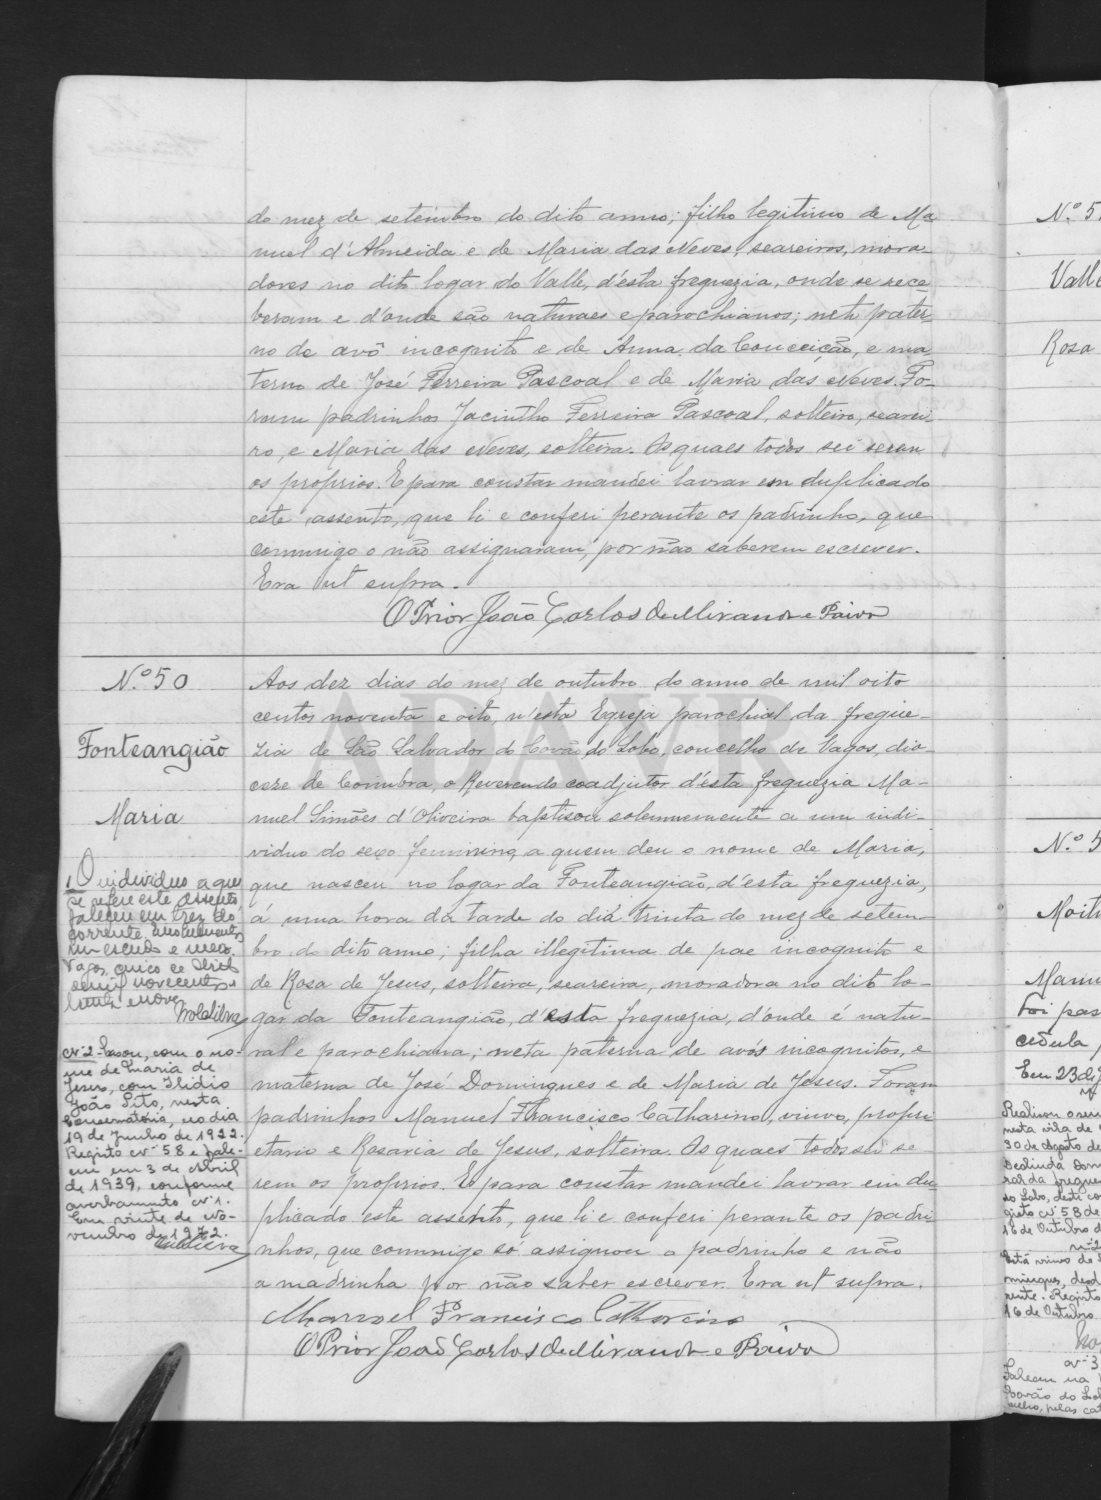 do mez de setembro do dito anno; filho legitimo de Ma
nuel d'Almeida e de Maria das Neves, seareiros, mora-
dores no dito logar do Valle, d'ésta freguezia, onde se rece-
beram e d'onde são naturaes e parochianos; neto pater-
no de avô incognito e de Anna da Conceição, e ma
terno de José Ferreira Pascoal e de Maria das Neves. Fo-
ram padrinhos Jacintho Ferreira Pascoal, solteiro, searei-
ro, e Maria das Neves, solteira. Os quaes todos sei serem
os proprios. E para constar mandei lavrar em duplicado
este assento, que li e conferi perante os padrinhos, que
commigo o não assignaram, por não saberem escrever.
Era ut supra.
O Prior João Carlos de Miranda e Paiva
N.º 50
Fonteangião
Maria
Aos dez dias do mez de outubro do anno de mil oito
centos noventa e oito, n'esta Egreja parochial da fregue-
zia de São Salvador do Covão do Lobo, concelho de Vagos, dio-
cese de Coimbra, o Reverendo coadjutor d'ésta freguezia Ma-
nuel Simões d'Oliveira baptisou solemnemente a um indi-
viduo do sexo feminino, a quem deu o nome de Maria,
que nasceu no logar da Fonteangião, d'ésta freguezia,
á uma hora da tarde do dia trinta do mez de setem-
bro do dito anno; filha illegitima de pae incognito e
de Rosa de Jesus, solteira, seareira, moradora no dito lo-
gar da Fonteangião, d'esta freguezia, d'onde é natu-
ral e parochiana; neta paterna de avós incognitos, e
materna de José Domingues e de Maria de Jesus. Foram
padrinhos Manuel Francisco Catharino, viuvo, propri
etario e Rosaria de Jesus, solteira. Os quaes todos sei se-
rem os proprios. E para constar mandei lavrar em du
plicado este assento, que li e conferi perante os padri
nhos, que commigo só assignou o padrinho e não
a madrinha por não saber escrever. Era ut supra.
Manoel Francisco Catharino
O Prior João Carlos de Miranda e Paiva
1 O individuo a que
se refere este assento,
faleceu em trez do
corrente.
um escudo e meio.
Vagos, cinco de Abril
de mil novecentos e
trinta e nove.
Nº 2 - Casou, com o no-
me de Maria de
Jesus, com Ilidio
João Sito, nesta
Conservatória, no dia
19 de Junho de 1922.
Registo nº 58 e fale-
ceu em 3 de Abril
de 1939, conforme
averbamento nº 1.
Em vinte de No-
vembro de 1972.
ADAVR
N.º 5
Valle
Rosa
N.º 5
Manu
Foi pas
cedula
Em 23 de
nesta vila de
30 de Agosto de
Deolinda Dom
do Lobo, deste co
gisto nº 58 de
16 de Outubro d
nº 2
Está viuvo de
mingues,
nente. Registo
16 de Outubro
nº 3
Faleceu na
Covão do Lob